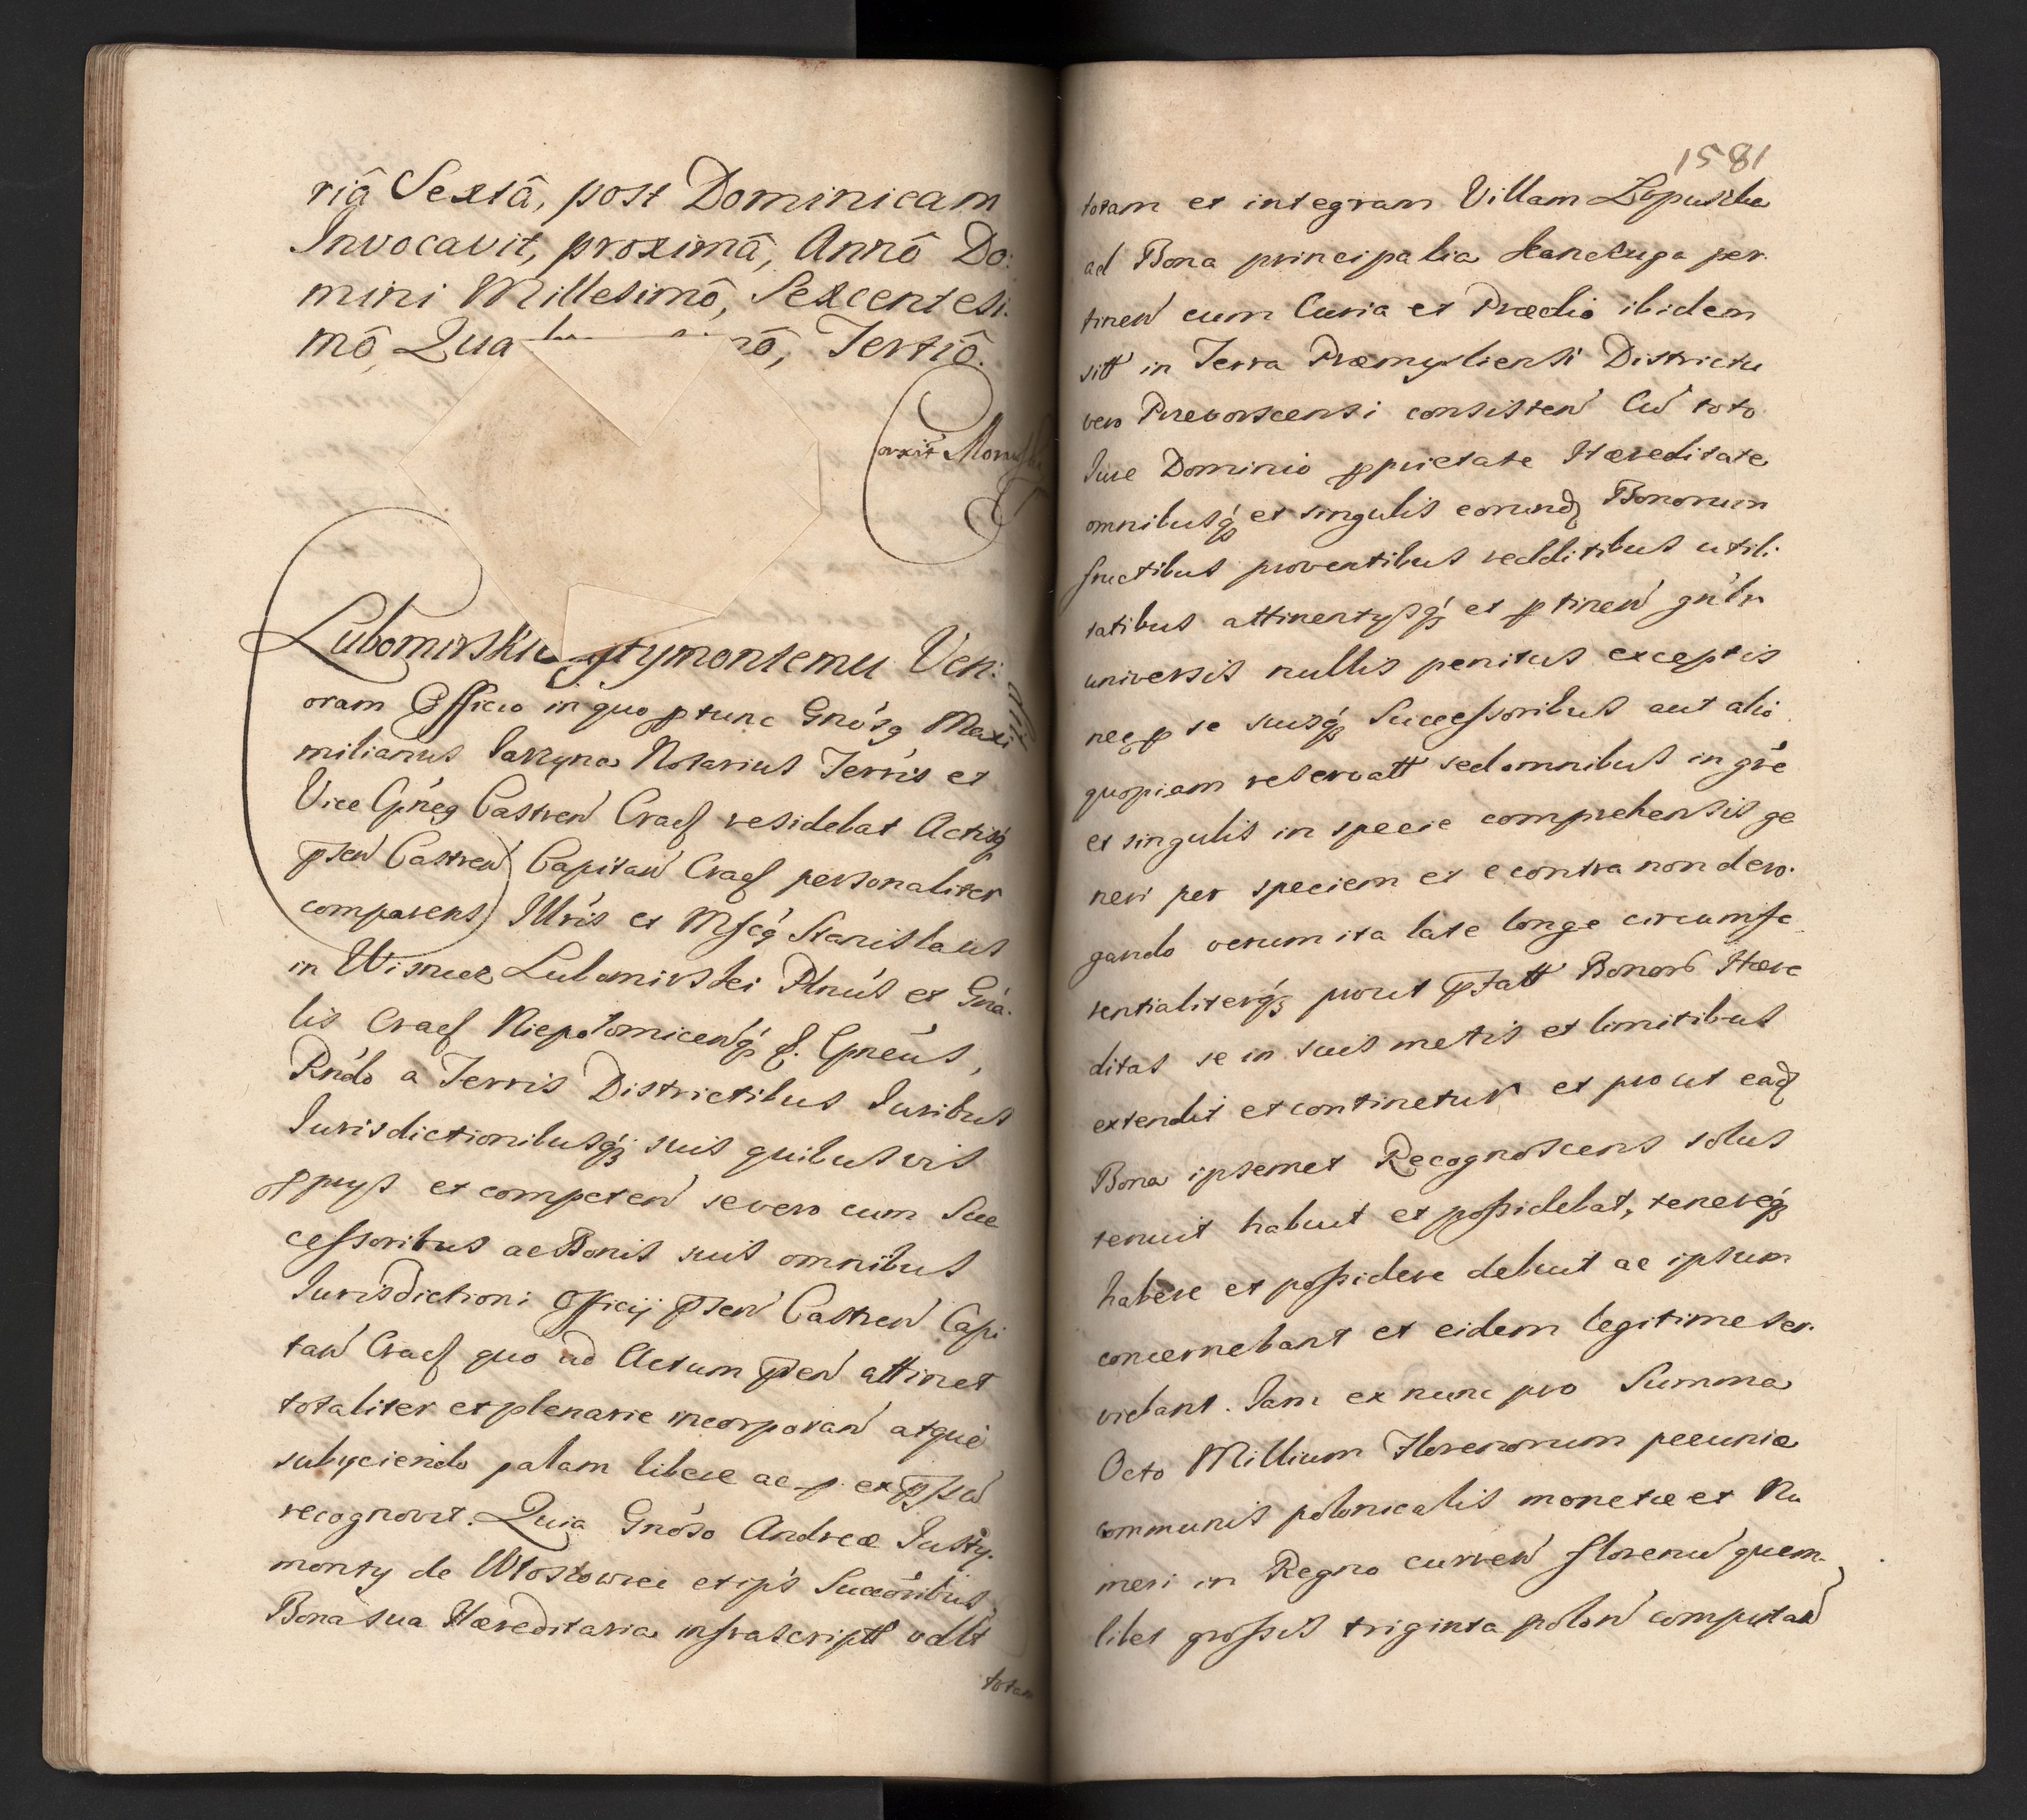 riâ Sextâ, post Dominicam
Invocavit, proximâ, Annô Do:
mini Millesimô, Sexcentesi:
mô, Qua nô, Tertiô.
Lubomirski ym ontemu Ven:
oram Officio in quo ptunc Gnósq Maxi
milianus Jarzyna Notarius Terris et
Vice Cpneq Castren Cracf residebat Actisq
pten Castren Capitan Cracf personaliter
comparens Illris et Mfcq Stanislaus
in Wisnicz Lubomirski Plnus et Gna:
lis Cracf Niepolomicenq f. Cpneus,
Pndo a Terris Districtibus Juribus
Jurisdictionibusq suis quibusvis
ppriys et competen se vero cum Suc
cessoribus ac Bonis suis omnibus
Jurisdictioni Officij pten Castren Capi
tan Cracf quo ad Actum pten attinet
totaliter et plenarie incorporan atque
subyciendo palam libere ac p. expsse
recognovit. Quia Gnoso Andreæ Justy:
monty de Wlostowice et ips Succoribus,
Bona sua Hæreditaria infrascriptt vdlt
totam
1581
totam et integram Villam Lopuszka
ad Bona principalia Kanczuga per:
tinen cum Curia et Prædio ibidem
sitt in Terra Præmysliensi Districtu
vero Prevorscensi consisten Cū toto
Jure Dominio pprietate Hæreditate
omnibusq et singulis eorundq Bonorum
fructibus proventibus redditibus utili:
tatibus attinentysq et ptinen gnlr
universis nullis penitus exceptis
neq p se suisq Successoribus aut alio
quopiam reservatt sed omnibus in gre
et singulis in specie comprehensis ge
neri per speciem et e contra non dero:
gando verum ita late longe circumfe
rentialiterq prout pfatt Bonorō Hære
ditas se in suis metis et limitibus
extendit et continetur et prout eadq
Bona ipsemet Recognoscens solus
tenuit habuit et possidebat, tenereq
habere et possidere debuit ac ipsum
concernebant et eidem legitime ser:
viebant. Jam ex nunc pro Summa
Octo Millium Florenorum pecuniæ
communis polonicalis monetæ et Nu
meri in Regno curren florenū quem:
libet grossis triginta polon computan